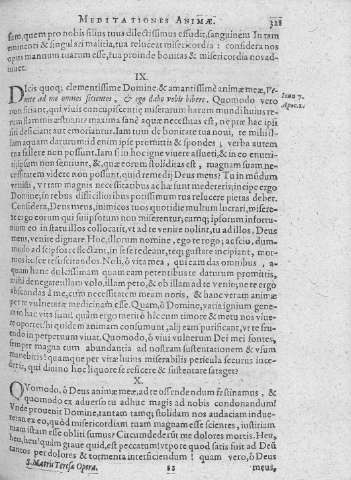 MEDITATIONES ANIMÆ. 321
sum, quem pro nobis filius tuus dilectissimus effudit, sanguinem In tam
eminenti & singulari malitia, tua reluceat misericordia: considera nos
opus manuum tuarum esse, tua proinde bonitas & misericordia nos ad-
iuuet.
IX.
Dicis quoq; clementissime Domine & amantissime animæ meæ, Ve-
nite ad me omnes sitientes, & ego dabo vobis bibere. Quomodo vero
Ioan 7.
Apoc 21.
non sitiant, qui viuis concupiscentiæ miserarum harum mundi huius re-
rum flammis æstuant? maxima sanè aquæ necessitas est, ne præ hac ipsi
siti deficiant aut emoriantur. Iam tum de bonitate tua noui, te
aquam daturum: id enim ipse promittis & spondes; verba autem
tua fallere non possunt. Iam si in hoc igne viuere assueti, & in eo enutri-
non sentiunt, & quæ eorum stoliditas est, magnam suam ne-
cessitatem videre non possunt, quid remedij Deus meus? Tu in mundum
venisti, vt tam magnis necessitatibus ac has sunt mederéris; incipe ergo
Domine, in rebus difficilioribus pietas tua relucere debet.
Considera, Deus meus, inimicos tuos quotidie multum lucrari, misere-
te ergo eorum qui sui ipsorum non miserentur, cumq; ipsorum infortu-
nium eo in statu illos collocarit, vt ad te venire nolint, tu ad illos, Deus
meus, venire dignare Hoc, illorum nomine, ego te rogo; ac scio, dum-
modo ad se ipsos reflectant, in se se redeant, teq; gustare incipiant, mor-
tuos istos resuscitandos. Noli, ô vita mea, qui eam das omnibus, a-
quam hanc dulcissimam quam eam petentibus te daturum promittis,
mihi denegare: illam volo, illam peto, & ob illam ad te venio, ne te ergo
abscondas à me, cum necessitatem meam noris, & hanc veram animæ
per te vulneratæ medicinam esse. Quam, ô Domine, varia ignium gene-
ra in hac vita sunt! quàm ergo meritò hîc cum timore & metu nos viue-
re oportet! hi quidem animam consumunt, alij eam purificant, vt te fru-
endo in perpetuum viuat. Quomodo, ô viui vulnerum Dei mei fontes,
semper magna cum abundantia ad nostram sustentationem & vsum
manabitis! quamque per vitæ huius miserabilis pericula securus ince-
det, qui diuino hoc liquore se reficere & sustentare satagat?
X.
Quomodo, ô Deus animæ meæ, ad te offendendum festinamus, &
quomodo ex aduerso tu adhuc magis ad nobis condonandum!
Vnde prouenit Domine, tantam tamq; stolidam nos audaciam indue-
re? an ex eo, quod misericordiam tuam magnam esse scientes, iustitiam
tuam iustam esse obliti sumus? Circumdederunt me dolores mortis. Heu,
heu, heu! quàm graue quid, est peccatum! vt pote quod satis fuit ad Deum
tantos per dolores & tormenta interficiendum! quam vero, ô Deus
S. Matris Teresæ Opera. meus,